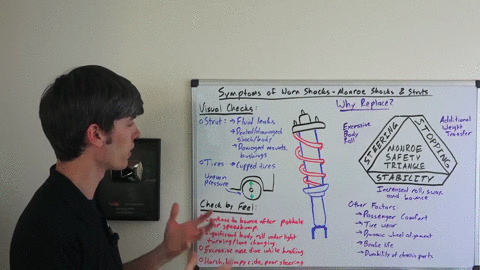 Symptoms of Worn Shocks - Monroe Shocks & Struts
Visual Checks:
Strut: → Fluid leaks
→ Dented/damaged
shock/body
→ Damaged mounts,
bushings
Tires → Cupped tires
Uneven
pressure
Check by Feel:
to bounce after pothole
or speedbump
significant body roll under light
turning/lane changing
Excessive nose dive while braking
Harsh, bumpy ride, poor steering
Why Replace?
Excessive
Body
Roll
Additional
Weight
Transfer
STEERING
STOPPING
MONROE
SAFETY
TRIANGLE
STABILITY
Increased roll, sway
and bounce
Other Factors:
→ Passenger Comfort
→ Tire wear
→ Dynamic wheel alignment
→ Brake life
→ Durability of chassis parts